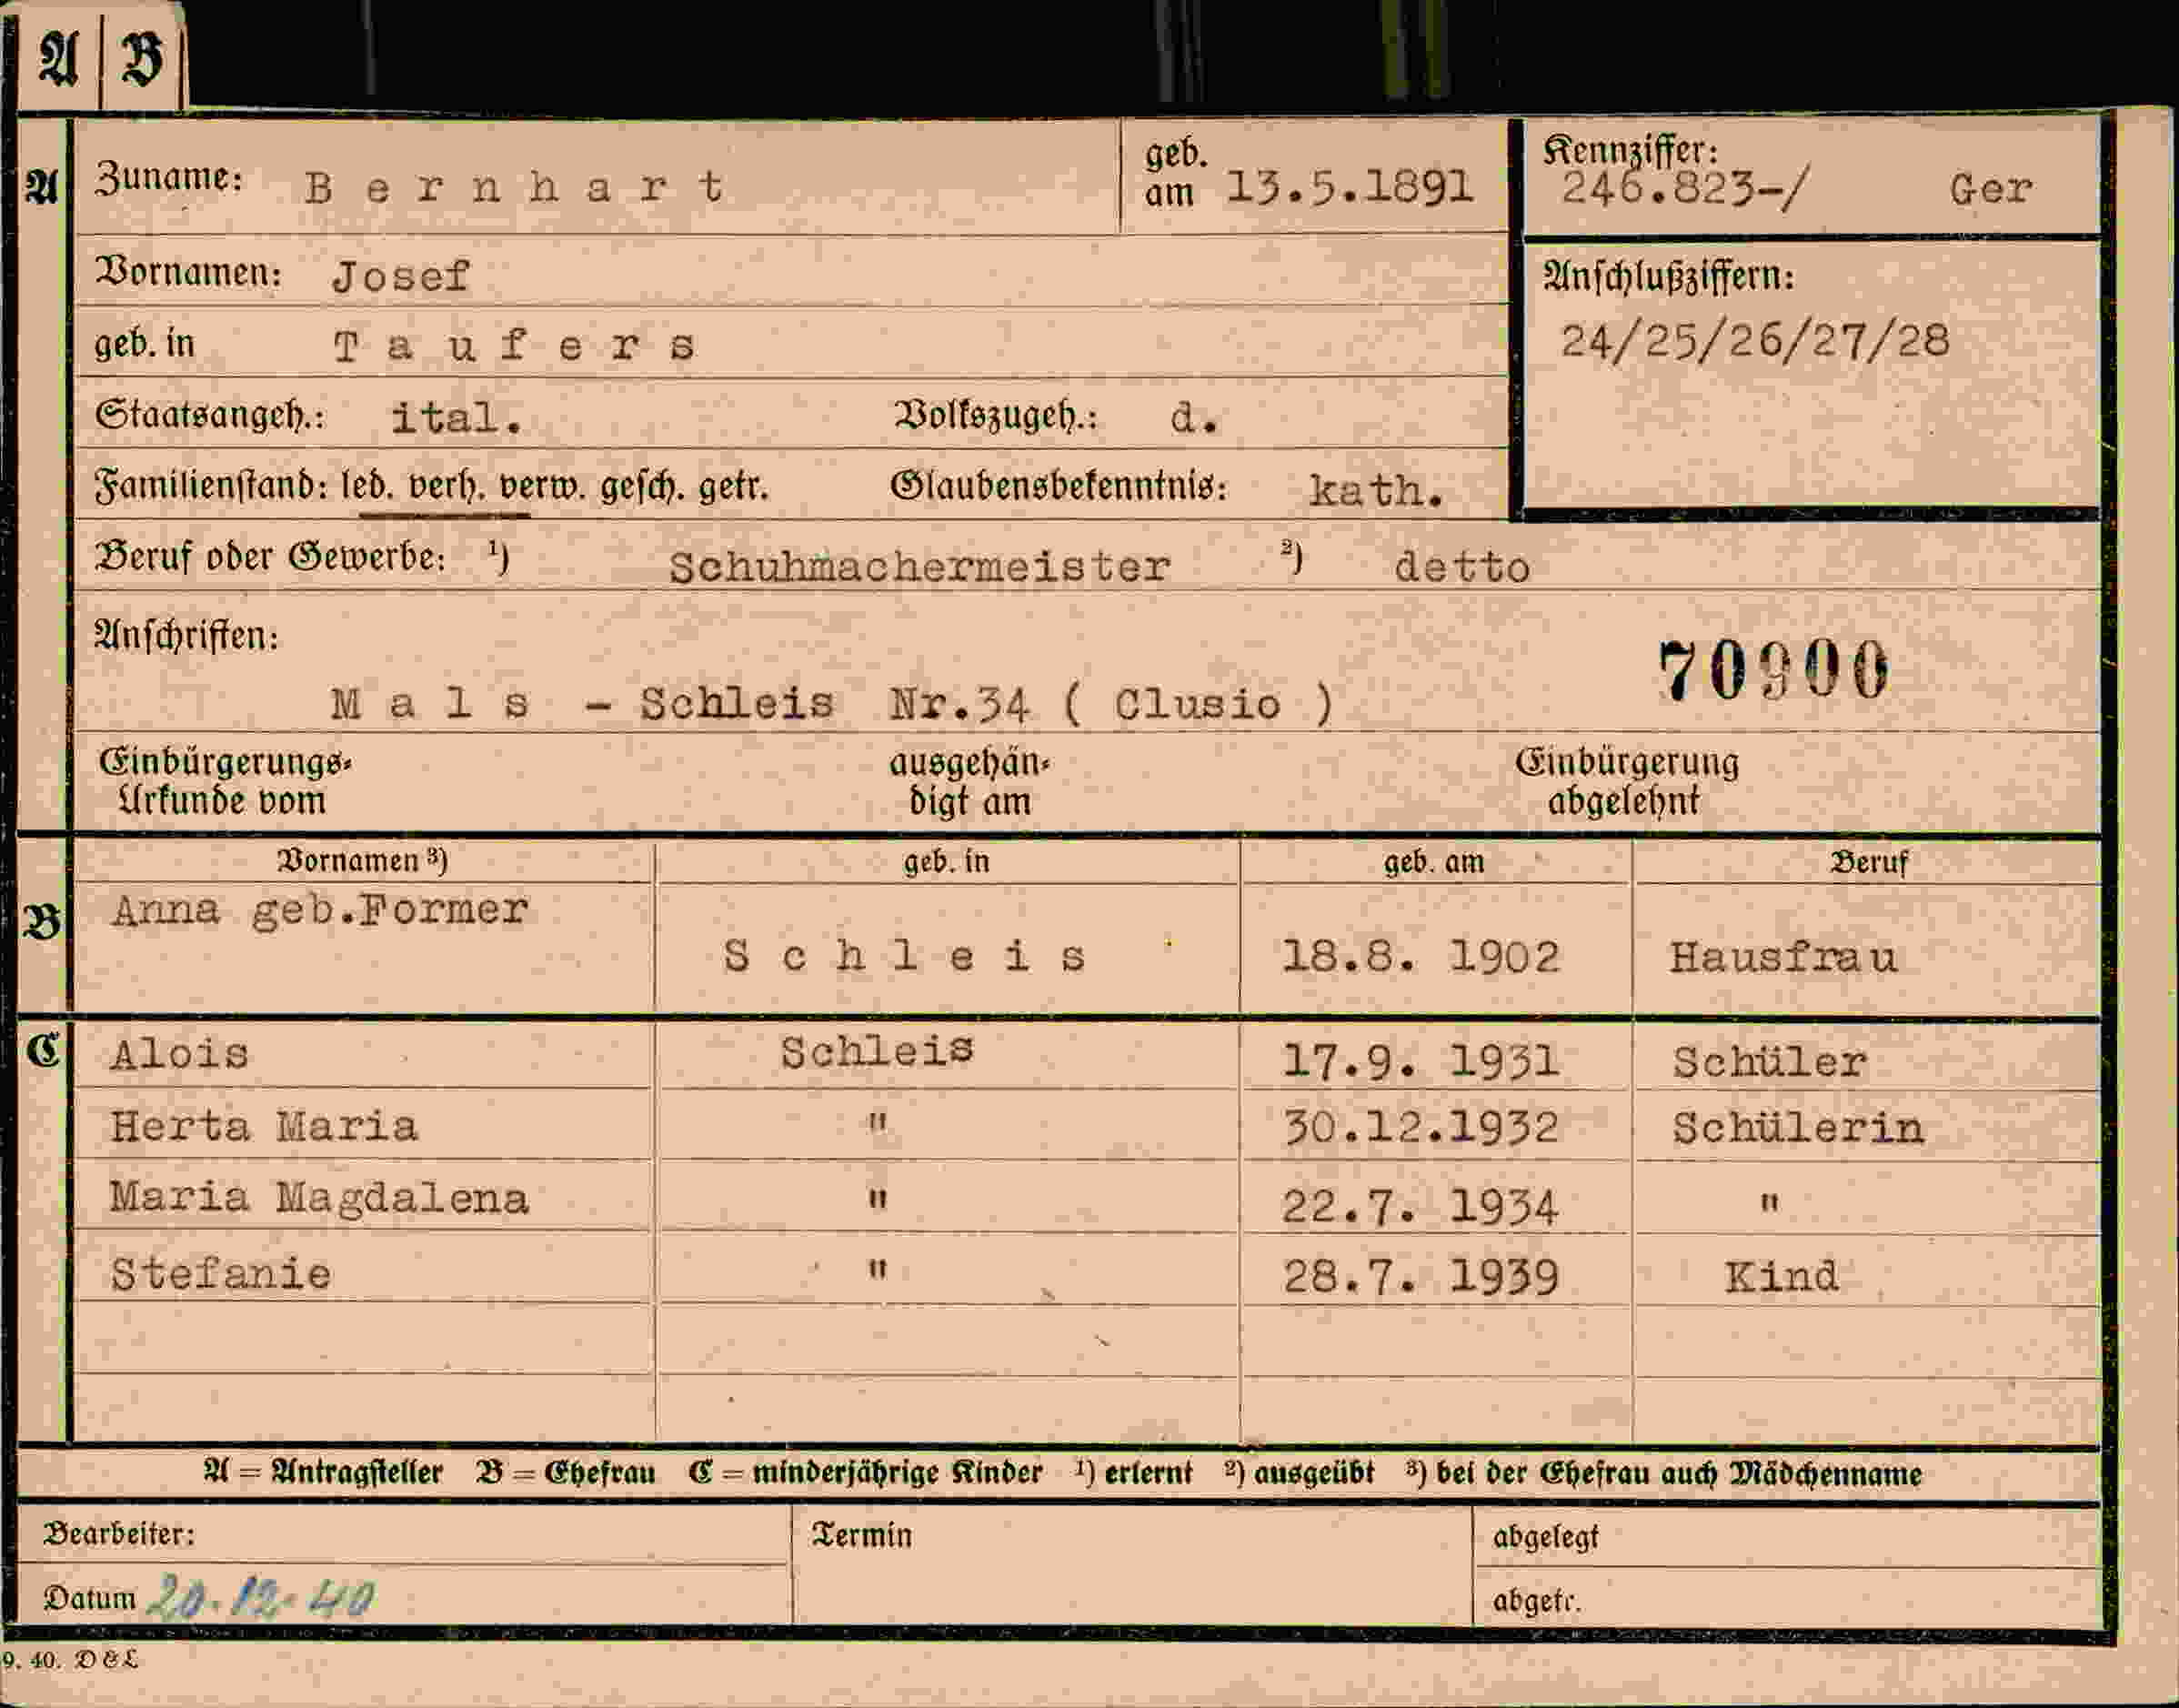 A B
A Zuname: Bernhart geb. am 13.5.1891 Kennziffer: 246.823-/ Ger
Vornamen: Josef Anschlußziffern:
geb. in Taufers 24/25/26/27/28
Staatsangeh.: ital. Volkszugeh.: d.
Familienstand: led. verh. verw. gesch. getr. Glaubensbekenntnis: kath.
Beruf oder Gewerbe: ¹) Schuhmachermeister ²) detto
Anschriften:
70900
Mals - Schleis Nr.34 ( Clusio )
Einbürgerungs- ausgehän- Einbürgerung
Urkunde vom digt am abgelehnt
Vornamen ³) geb. in geb. am Beruf
B Anna geb.Former
Schleis 18.8. 1902 Hausfrau
C Alois Schleis 17.9. 1931 Schüler
Herta Maria " 30.12.1932 Schülerin
Maria Magdalena " 22.7. 1934 "
Stefanie " 28.7. 1939 Kind
A = Antragsteller B = Ehefrau C = minderjährige Kinder ¹) erlernt ²) ausgeübt ³) bei der Ehefrau auch Mädchenname
Bearbeiter: Termin abgelegt
Datum 20.12.40 abgetr.
9. 40. D & L